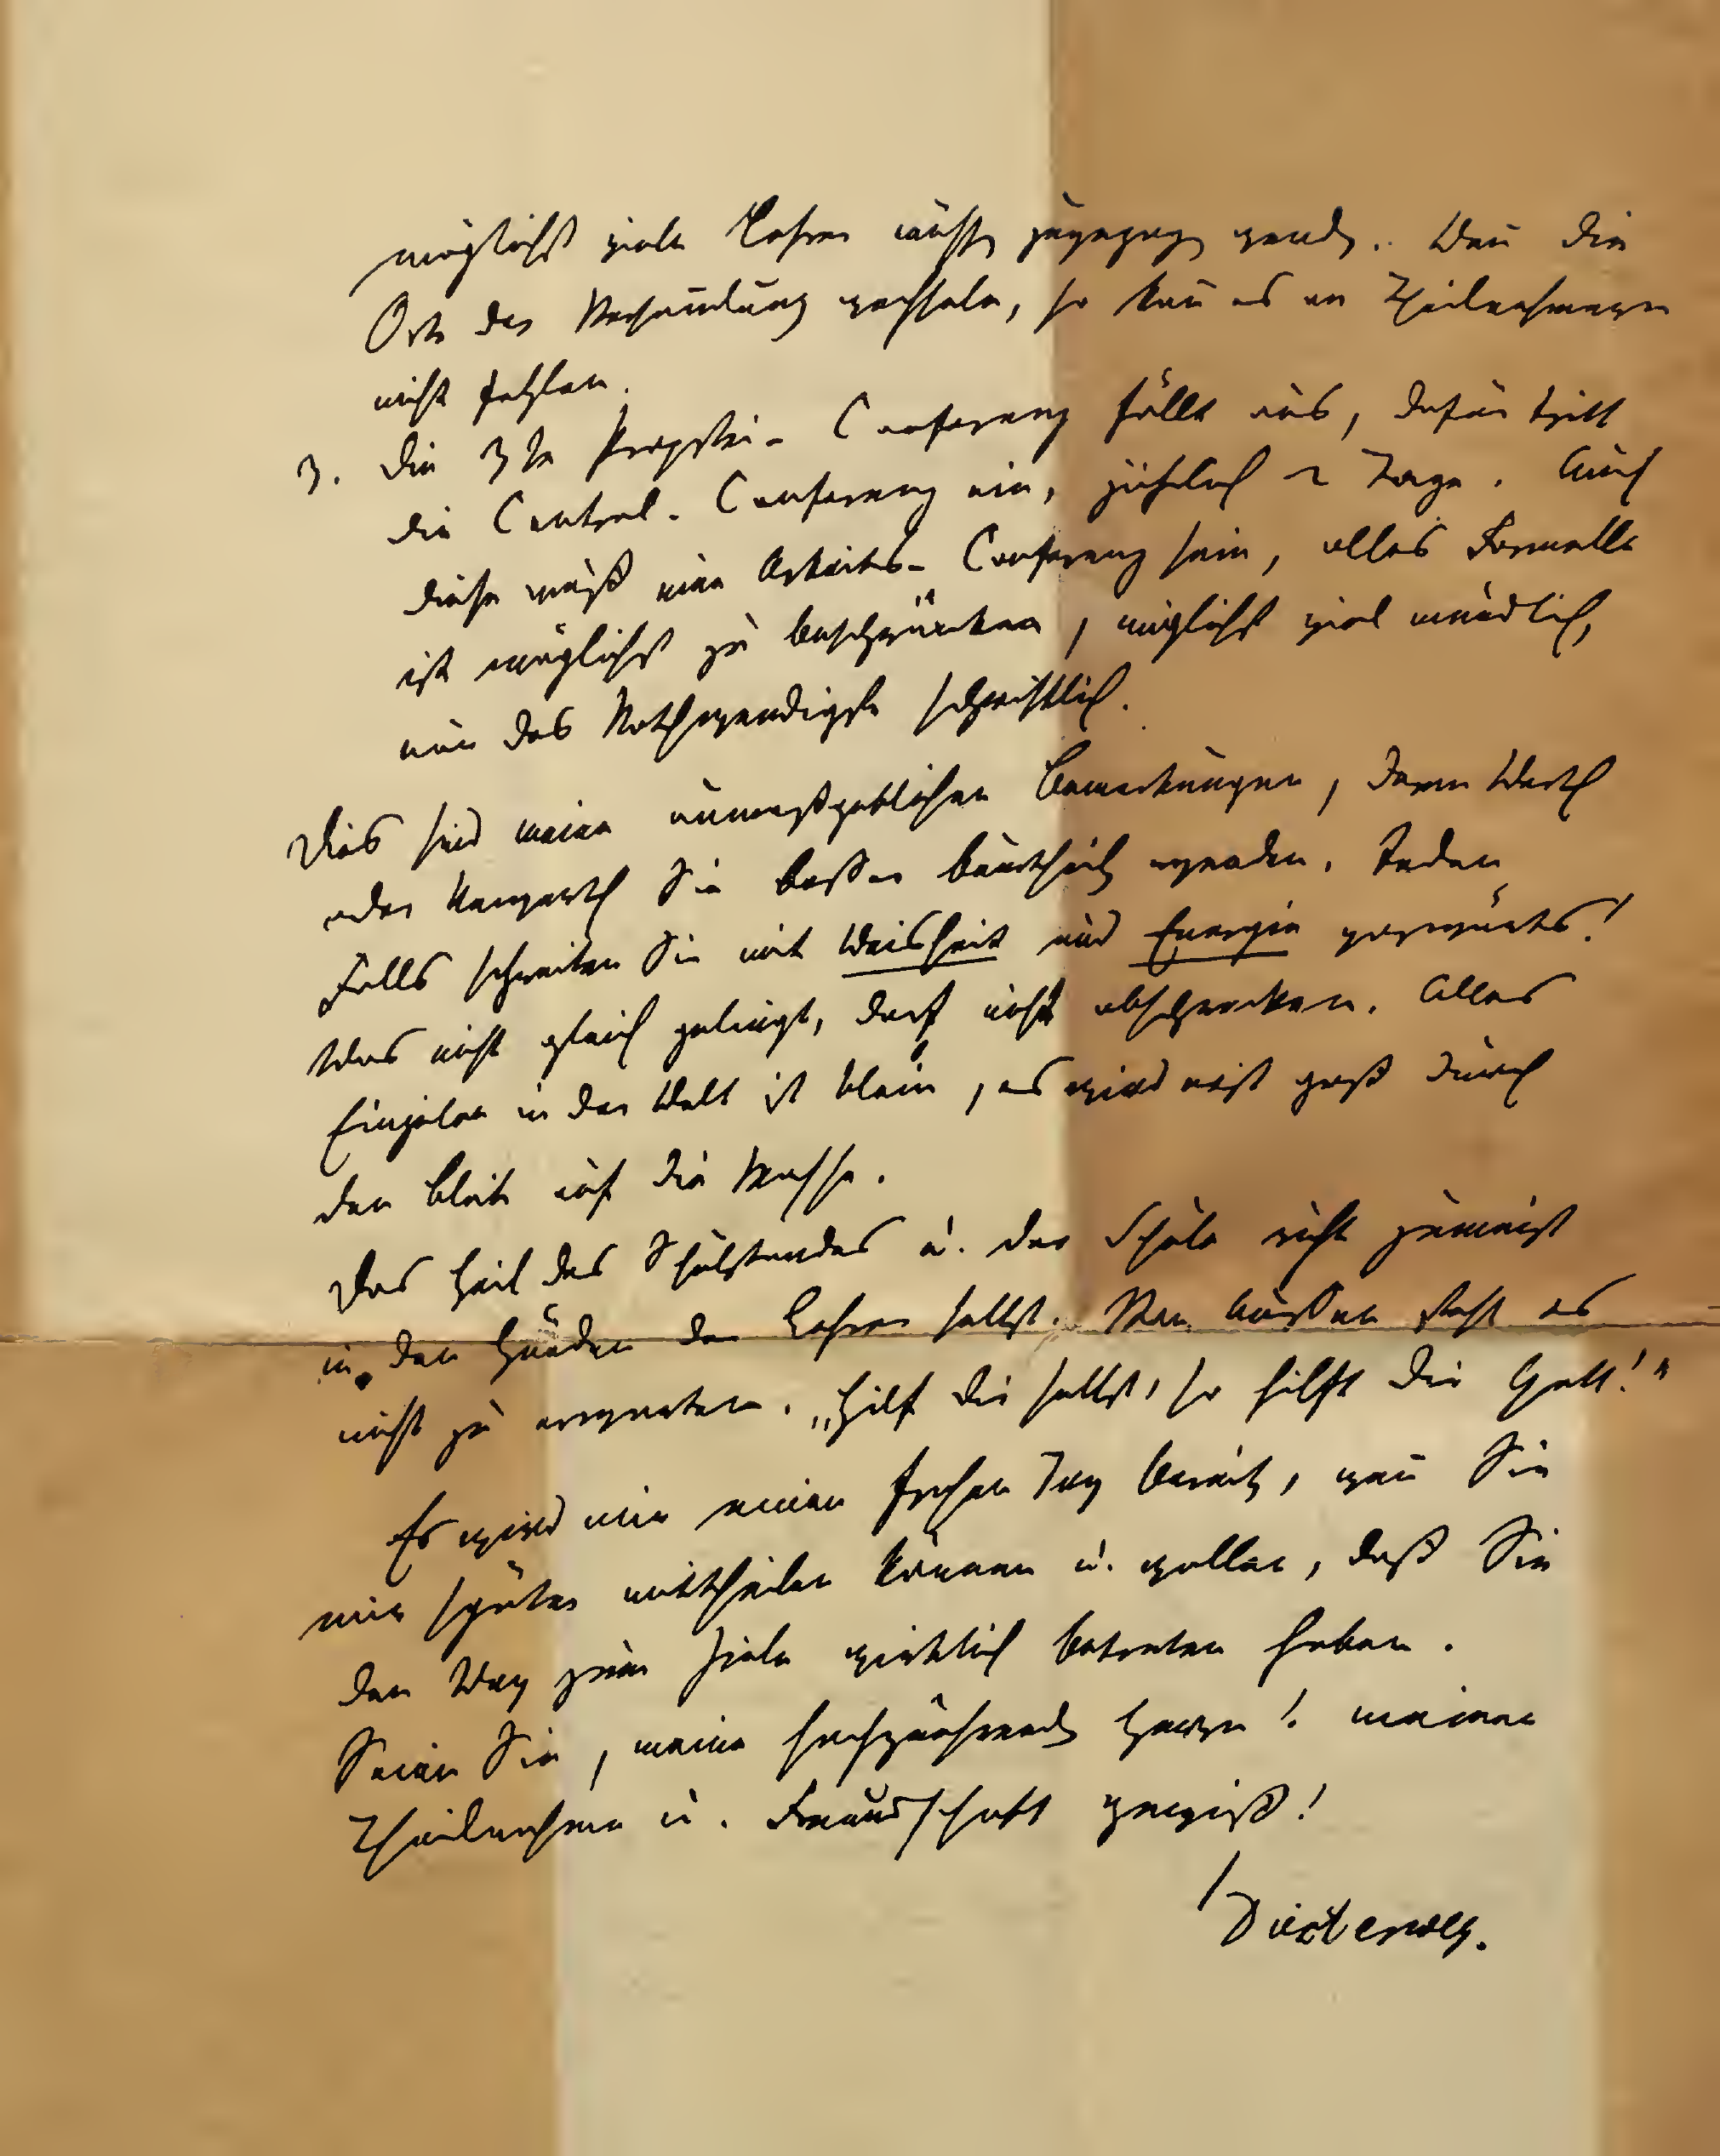 möglichst viele Lehrer müssen zugezogen werden. Wenn die
Orte der Versammlung wechseln, so kann es an Theilnehmern
nicht fehlen.
3. Die 3te Propstei-Conferenz fällt aus, dafür tritt
die Central-Conferenz ein, jährlich 2 Tage. Auch
diese muß eine Arbeits-Conferenz sein, alles Formelle
ist möglichst zu beschränken, möglichst viel mündlich,
nur das Nothwendigste schriftlich.
Dies sind meine unmaßgeblichen Bemerkungen, deren Werth
oder Unwerth Sie besser beurtheilen werden. Jeden
Falls schreiten Sie mit Weisheit und Energie vorwärts!
Was nicht gleich gelingt, darf nicht abschrecken. Alles
Einzelne in der Welt ist klein, es wird erst groß durch
den Blick auf die Masse.
Das Heil des Schulstandes u. der Schule ruht zumeist
in den Händen der Lehrer selbst. Von außen steht es
nicht zu erwarten. „Hilf dir selbst, so hilft dir Gott!"
Es wird mir einen frohen Tag bereiten, wenn Sie
mir später mittheilen können u. wollen, daß Sie
den Weg zum Ziele wirklich betreten haben.
Seien Sie, meine hochzuehrenden Herren! meiner
Theilnahme u. Freundschaft gewiß!
Diesterweg.